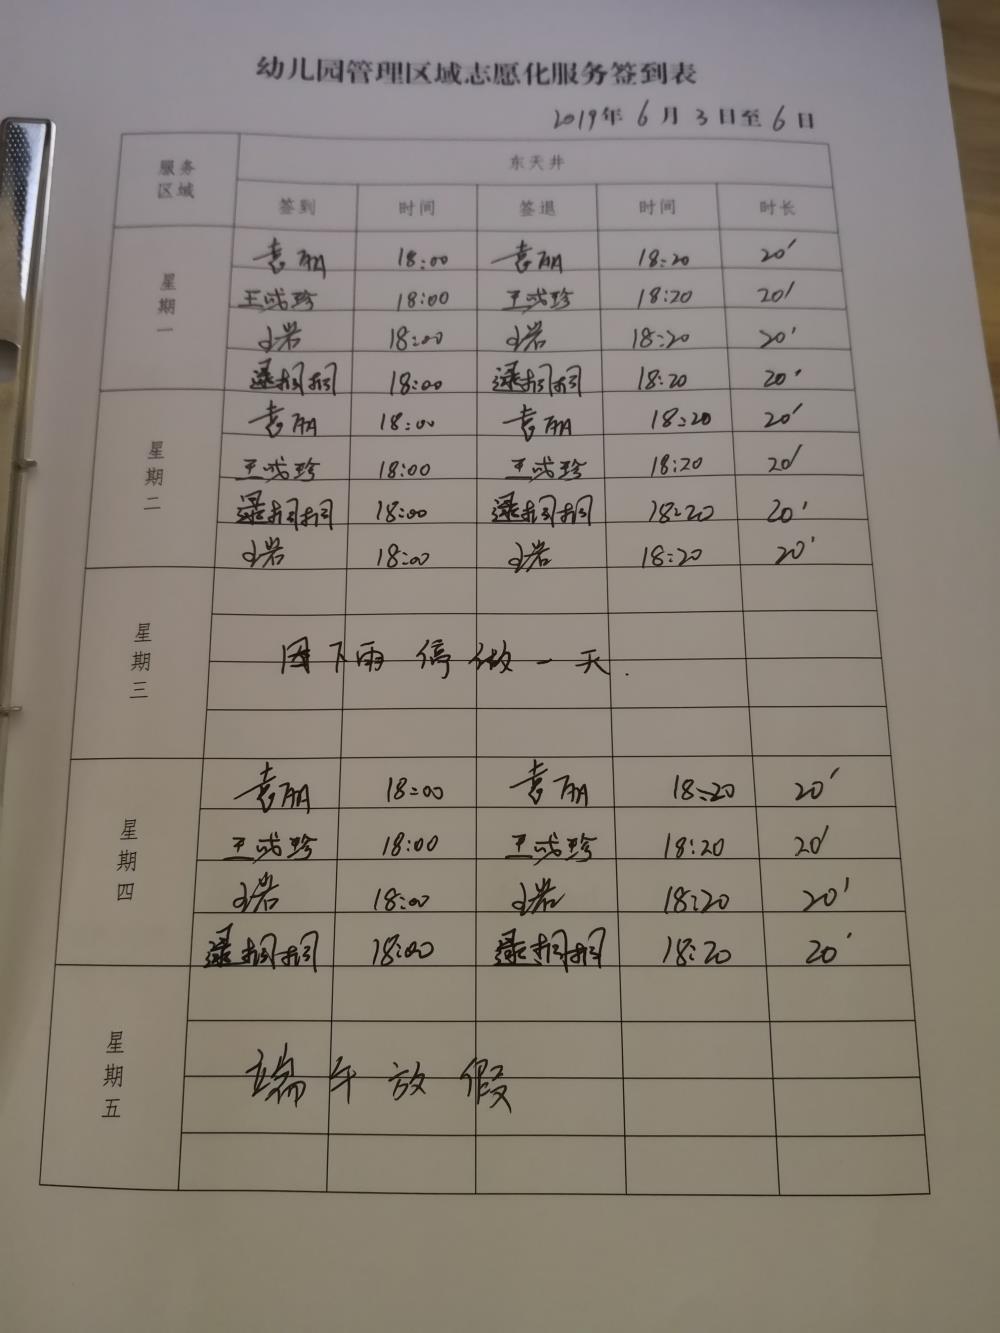 幼儿园管理区域志愿化服务签到表
2019年6月3日至6日
服务区域 东天井
签到 时间 签退 时间 时长
星期一
袁丽 18:00 袁丽 18:20 20'
王 珍 18:00 王 珍 18:20 20'
18:00 18:20 20'
桐桐 18:00 桐桐 18:20 20'
星期二
袁丽 18:00 袁丽 18:20 20'
王 珍 18:00 王 珍 18:20 20'
桐桐 18:00 桐桐 18:20 20'
18:00 18:20 20'
星期三
因下雨停做一天.
星期四
袁丽 18:00 袁丽 18:20 20'
王 珍 18:00 王 珍 18:20 20'
18:00 18:20 20'
桐桐 18:00 桐桐 18:20 20'
星期五
端午放假